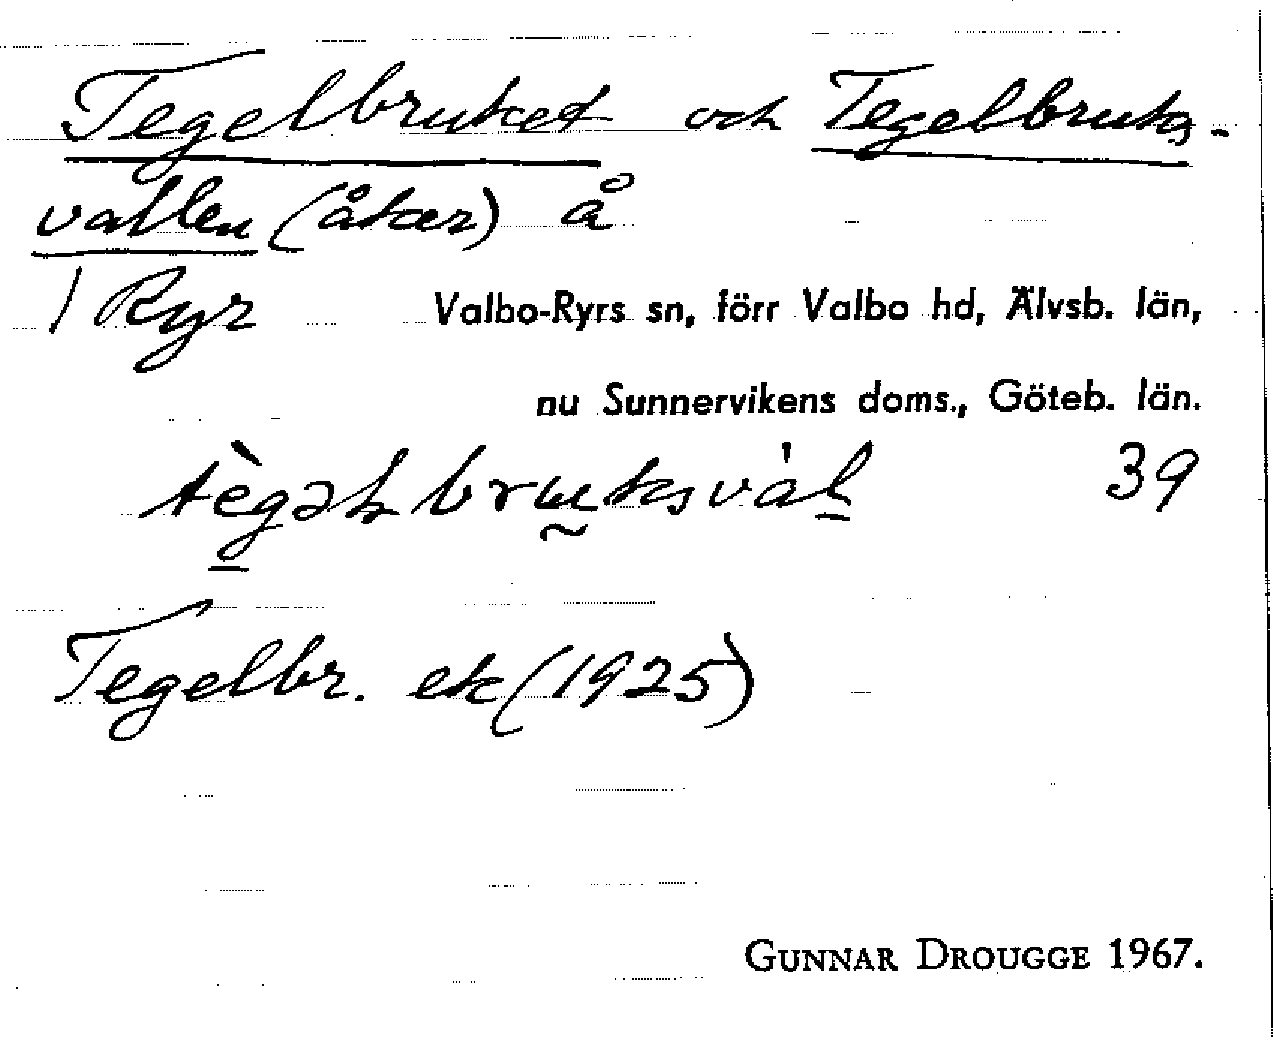 Tegelbruket och Tegelbruks-
vallen (åker) å
1 Ryr Valbo-Ryrs sn, förr Valbo hd, Älvsb. län,
nu Sunnervikens doms., Göteb. län.
39
Tegelbr. ek (1925)
GUNNAR DROUGGE 1967.